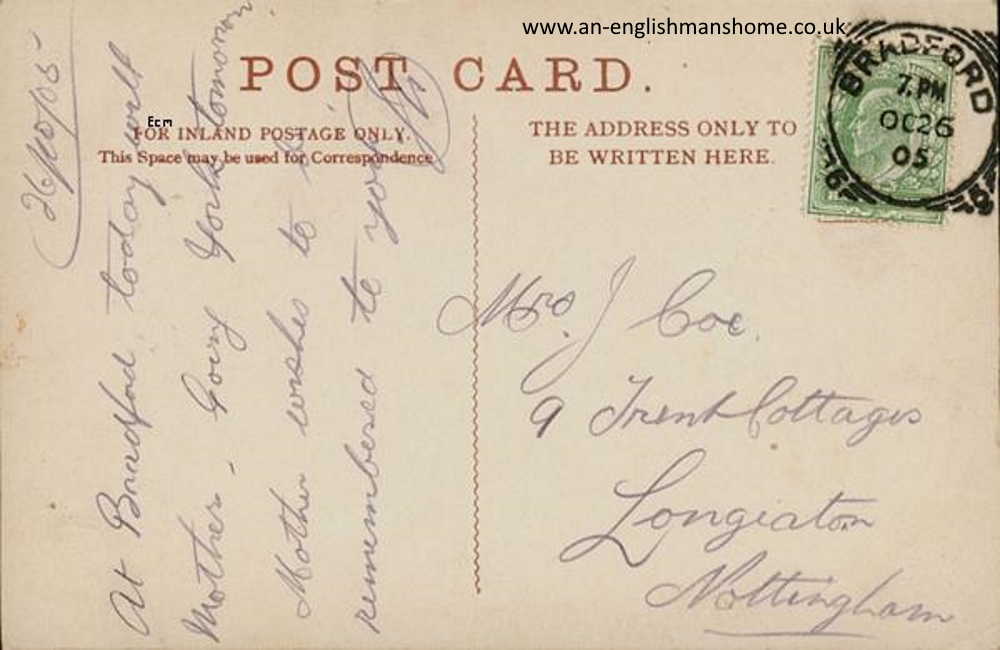 www.an-englishmanshome.co.uk
POST CARD.
Ecm
FOR INLAND POSTAGE ONLY.
This Space may be used for Correspondence
THE ADDRESS ONLY TO
BE WRITTEN HERE.
BRADFORD
7. PM
OC 26
05
26/10/05
At Bradford today with
Mother - Going York tomorrow.
Mother wishes to be
remembered to you
Mrs. J Coe.
9 Trent Cottages
Longeaton
Nottingham